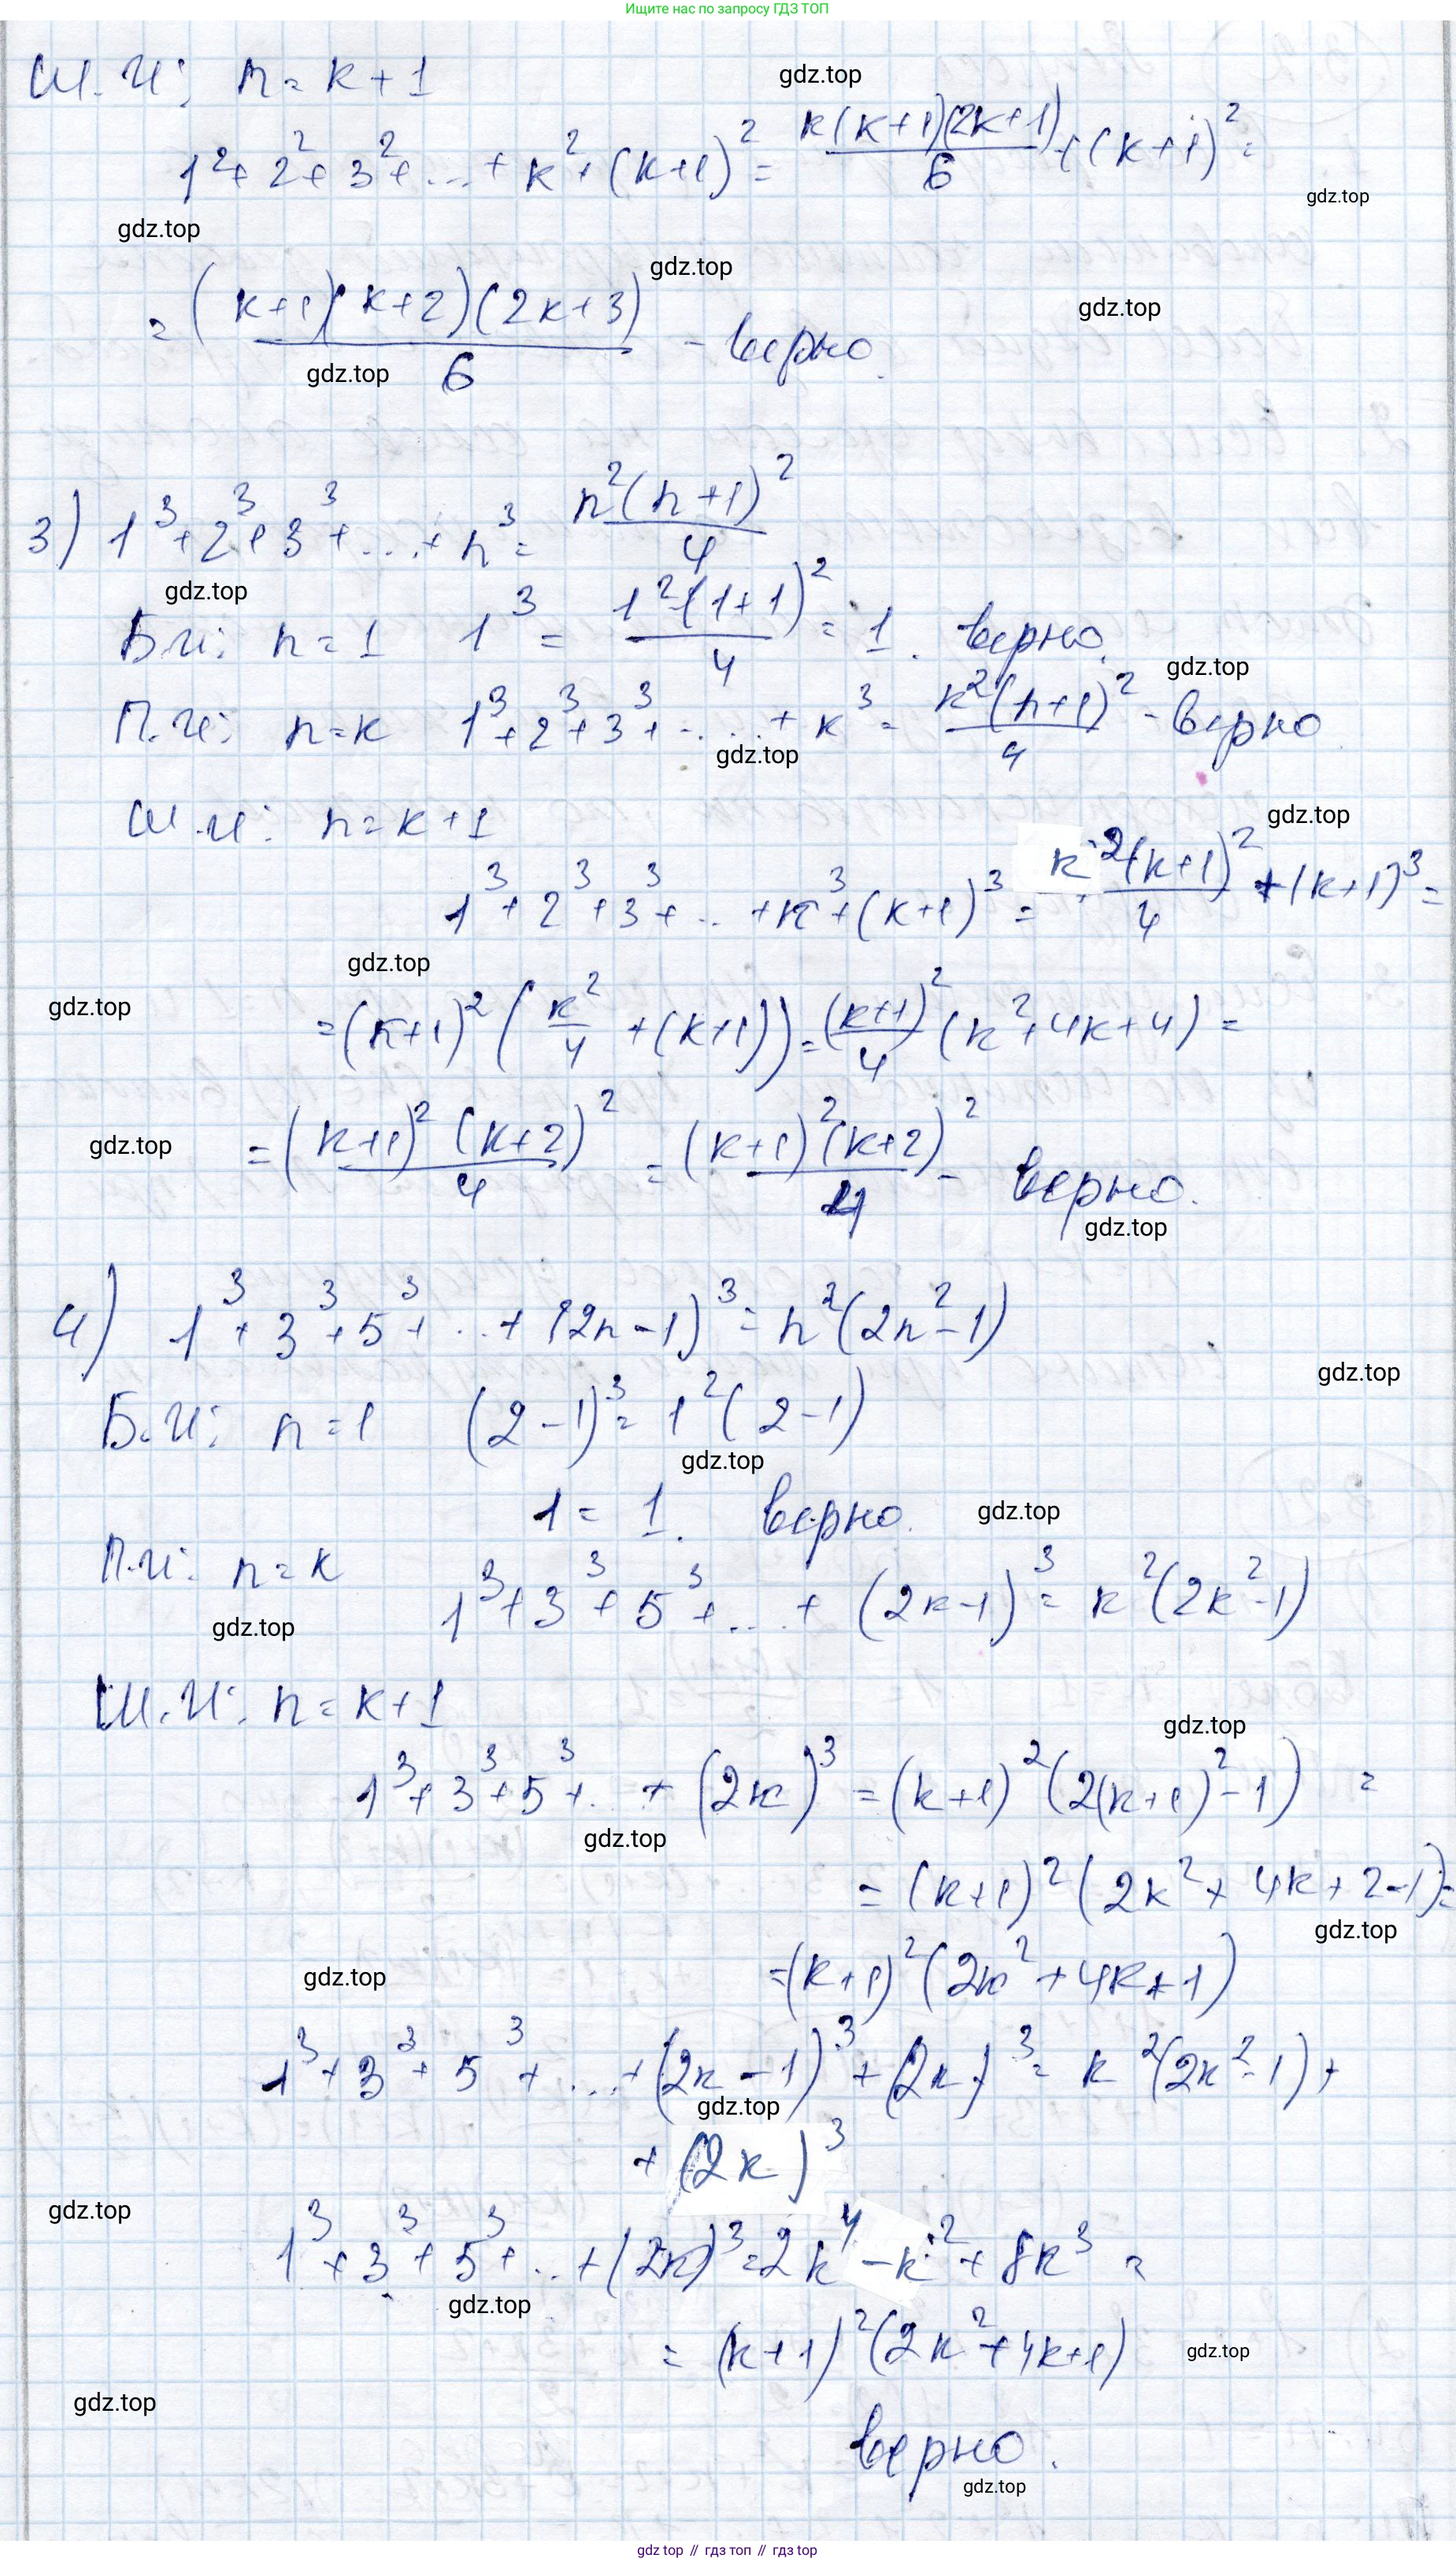 Ищите нас по запросу ГДЗ ТОП
Ш.И: n = k + 1
gdz.top
1² + 2² + 3² + ... + k² + (k+1)² = k(k+1)(2k+1)/6 + (k+1)² =
gdz.top
gdz.top
gdz.top
= (k+1)(k+2)(2k+3)/6 - верно.
gdz.top
gdz.top
3) 1³ + 2³ + 3³ + ... + n³ = n²(n+1)²/4
gdz.top
Б.И: n = 1 1³ = 1²(1+1)²/4 = 1. верно.
gdz.top
П.И: n = k 1³ + 2³ + 3³ + ... + k³ = k²(n+1)²/4 - верно
gdz.top
Ш.И: n = k + 1
gdz.top
1³ + 2³ + 3³ + .. + k³ + (k+1)³ = k²(k+1)²/4 + (k+1)³ =
gdz.top
gdz.top
= (k+1)² (k²/4 + (k+1)) = (k+1)²/4 (k² + 4k + 4) =
gdz.top
= (k+1)² (k+2)²/4 = (k+1)²(k+2)²/4 - верно.
gdz.top
4) 1³ + 3³ + 5³ + ... + (2n-1)³ = n²(2n²-1)
gdz.top
Б.И: n = 1 (2-1)³ = 1²(2-1)
gdz.top
1 = 1. верно.
gdz.top
П.И: n = k
1³ + 3³ + 5³ + ... + (2k-1)³ = k²(2k²-1)
gdz.top
Ш.И: n = k + 1
gdz.top
1³ + 3³ + 5³ + .. + (2k)³ = (k+1)²(2(k+1)²-1) =
gdz.top
= (k+1)²(2k² + 4k + 2-1) =
gdz.top
= (k+1)²(2k² + 4k + 1)
gdz.top
1³ + 3³ + 5³ + ... + (2k-1)³ + (2k)³ = k²(2k²-1) +
gdz.top
+ (2k)³
gdz.top
1³ + 3³ + 5³ + .. + (2k)³ = 2k⁴ - k² + 8k³ =
gdz.top
= (k+1)²(2k² + 4k+1)
gdz.top
gdz.top
верно.
gdz.top
gdz top // гдз топ // гдз top